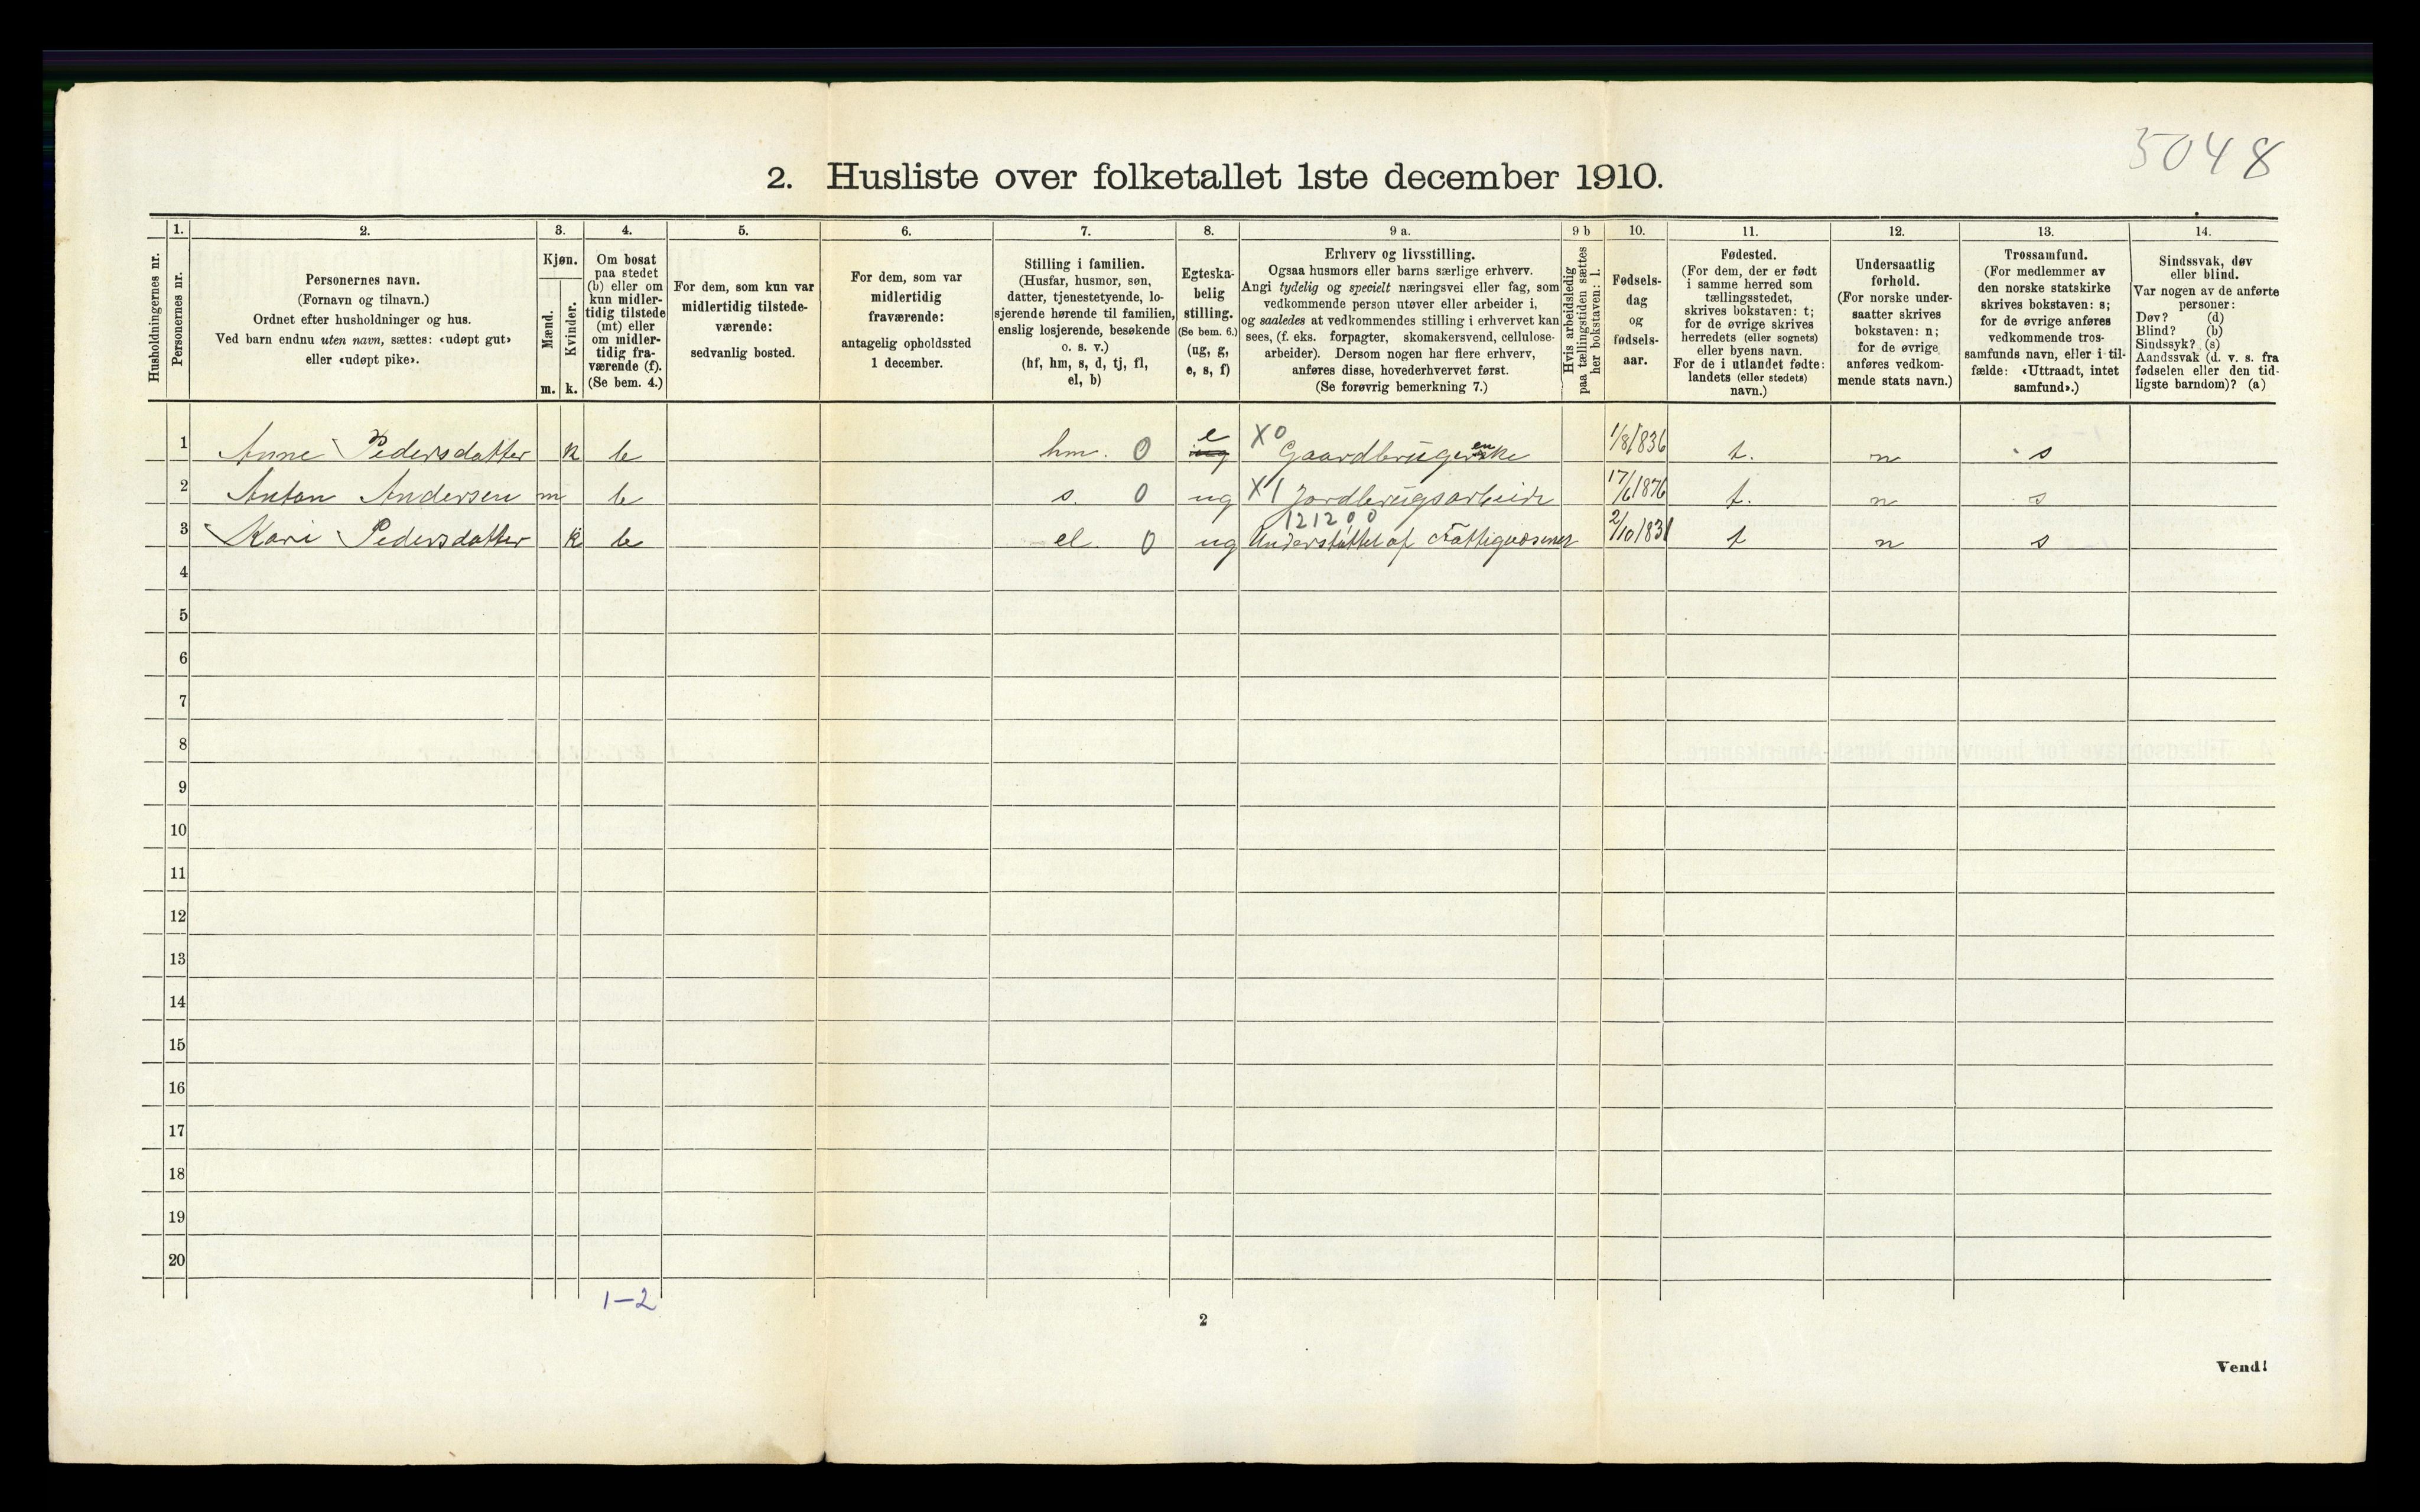 5048
2. Husliste over folketallet 1ste december 1910.
Husholdningernes nr.
1.
Personernes nr.
2.
Personernes navn.
(Fornavn og tilnavn.)
Ordnet efter husholdninger og hus.
Ved barn endnu uten navn, sættes: «udøpt gut»
eller «udøpt pike».
3.
Kjøn.
Mænd.
Kvinder.
m. k.
4.
Om bosat
paa stedet
(b) eller om
kun midler-
tidig tilstede
(mt) eller
om midler-
tidig fra-
værende (f).
(Se bem. 4.)
5.
For dem, som kun var
midlertidig tilstede-
værende:
sedvanlig bosted.
6.
For dem, som var
midlertidig
fraværende:
antagelig opholdssted
1 december.
7.
Stilling i familien.
(Husfar, husmor, søn,
datter, tjenestetyende, lo-
sjerende hørende til familien,
enslig losjerende, besøkende
o. s. v.)
(hf, hm, s, d, tj, fl,
el, b)
8.
Egteska-
belig
stilling.
(Se bem. 6.)
(ug, g,
e, s, f)
9 a.
Erhverv og livsstilling.
Ogsaa husmors eller barns særlige erhverv.
Angi tydelig og specielt næringsvei eller fag, som
vedkommende person utøver eller arbeider i,
og saaledes at vedkommendes stilling i erhvervet kan
sees, (f. eks. forpagter, skomakersvend, cellulose-
arbeider). Dersom nogen har flere erhverv,
anføres disse, hovederhvervet først.
(Se forøvrig bemerkning 7.)
9 b
Hvis arbeidsledig
paa tællingstiden sættes
her bokstaven: l.
10.
Fødsels-
dag
og
fødsels-
aar.
11.
Fødested.
(For dem, der er født
i samme herred som
tællingsstedet,
skrives bokstaven: t;
for de øvrige skrives
herredets (eller sognets)
eller byens navn.
For de i utlandet fødte:
landets (eller stedets)
navn.)
12.
Undersaatlig
forhold.
(For norske under-
saatter skrives
bokstaven: n;
for de øvrige
anføres vedkom-
mende stats navn.)
13.
Trossamfund.
(For medlemmer av
den norske statskirke
skrives bokstaven: s;
for de øvrige anføres
vedkommende tros-
samfunds navn, eller i til-
fælde: «Uttraadt, intet
samfund».)
14.
Sindssvak, døv
eller blind.
Var nogen av de anførte
personer:
Døv? (d)
Blind? (b)
Sindssyk? (s)
Aandssvak (d. v. s. fra
fødselen eller den tid-
ligste barndom)? (a)
1 Anne Pedersdatter k b hm. 0 e ug X0 Gaardbrugerske en 1/8 1836 t. n s
2 Anton Andersen m b s. 0 ug X1 Jordbrugsarbeide 17/6 1876 t. n s
121200
3 Kari Pedersdatter k b el. 0 ug Understøttet af Fattigvæsenet 2/10 1831 t n s
4
5
6
7
8
9
10
11
12
13
14
15
16
17
18
19
20
1-2
2
Vend!